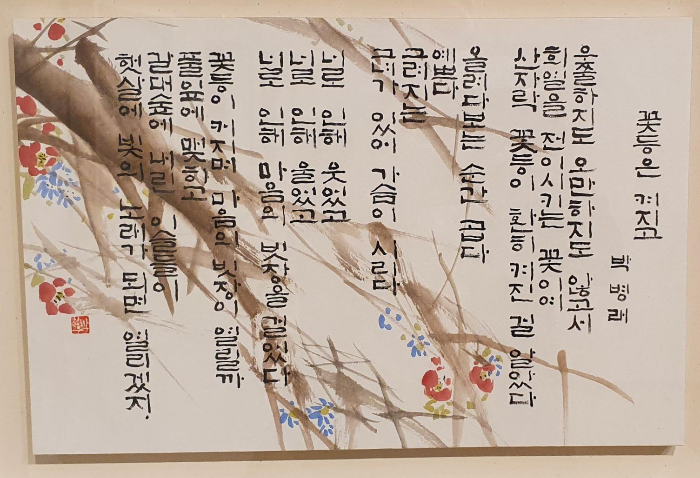 꽃등은 켜지고
박병래
우쭐하지도 오만하지도 않고서
희열을 전이시키는 꽃이여
산자락 꽃등이 환히 켜진 걸 알았다
올려다보는 순간 곱다
예쁘다
그려지는
그대가 있어 가슴이 시리다
널로 인해 웃었고
널로 인해 울었고
널로 인해 마음의 빗장을 걸었다
꽃등이 켜지며 마음의 빗장이 열릴까
풀잎에 맺히고
갈대숲에 내린 이슬들이
햇살에 빛의 노래가 되면 열리겠지.